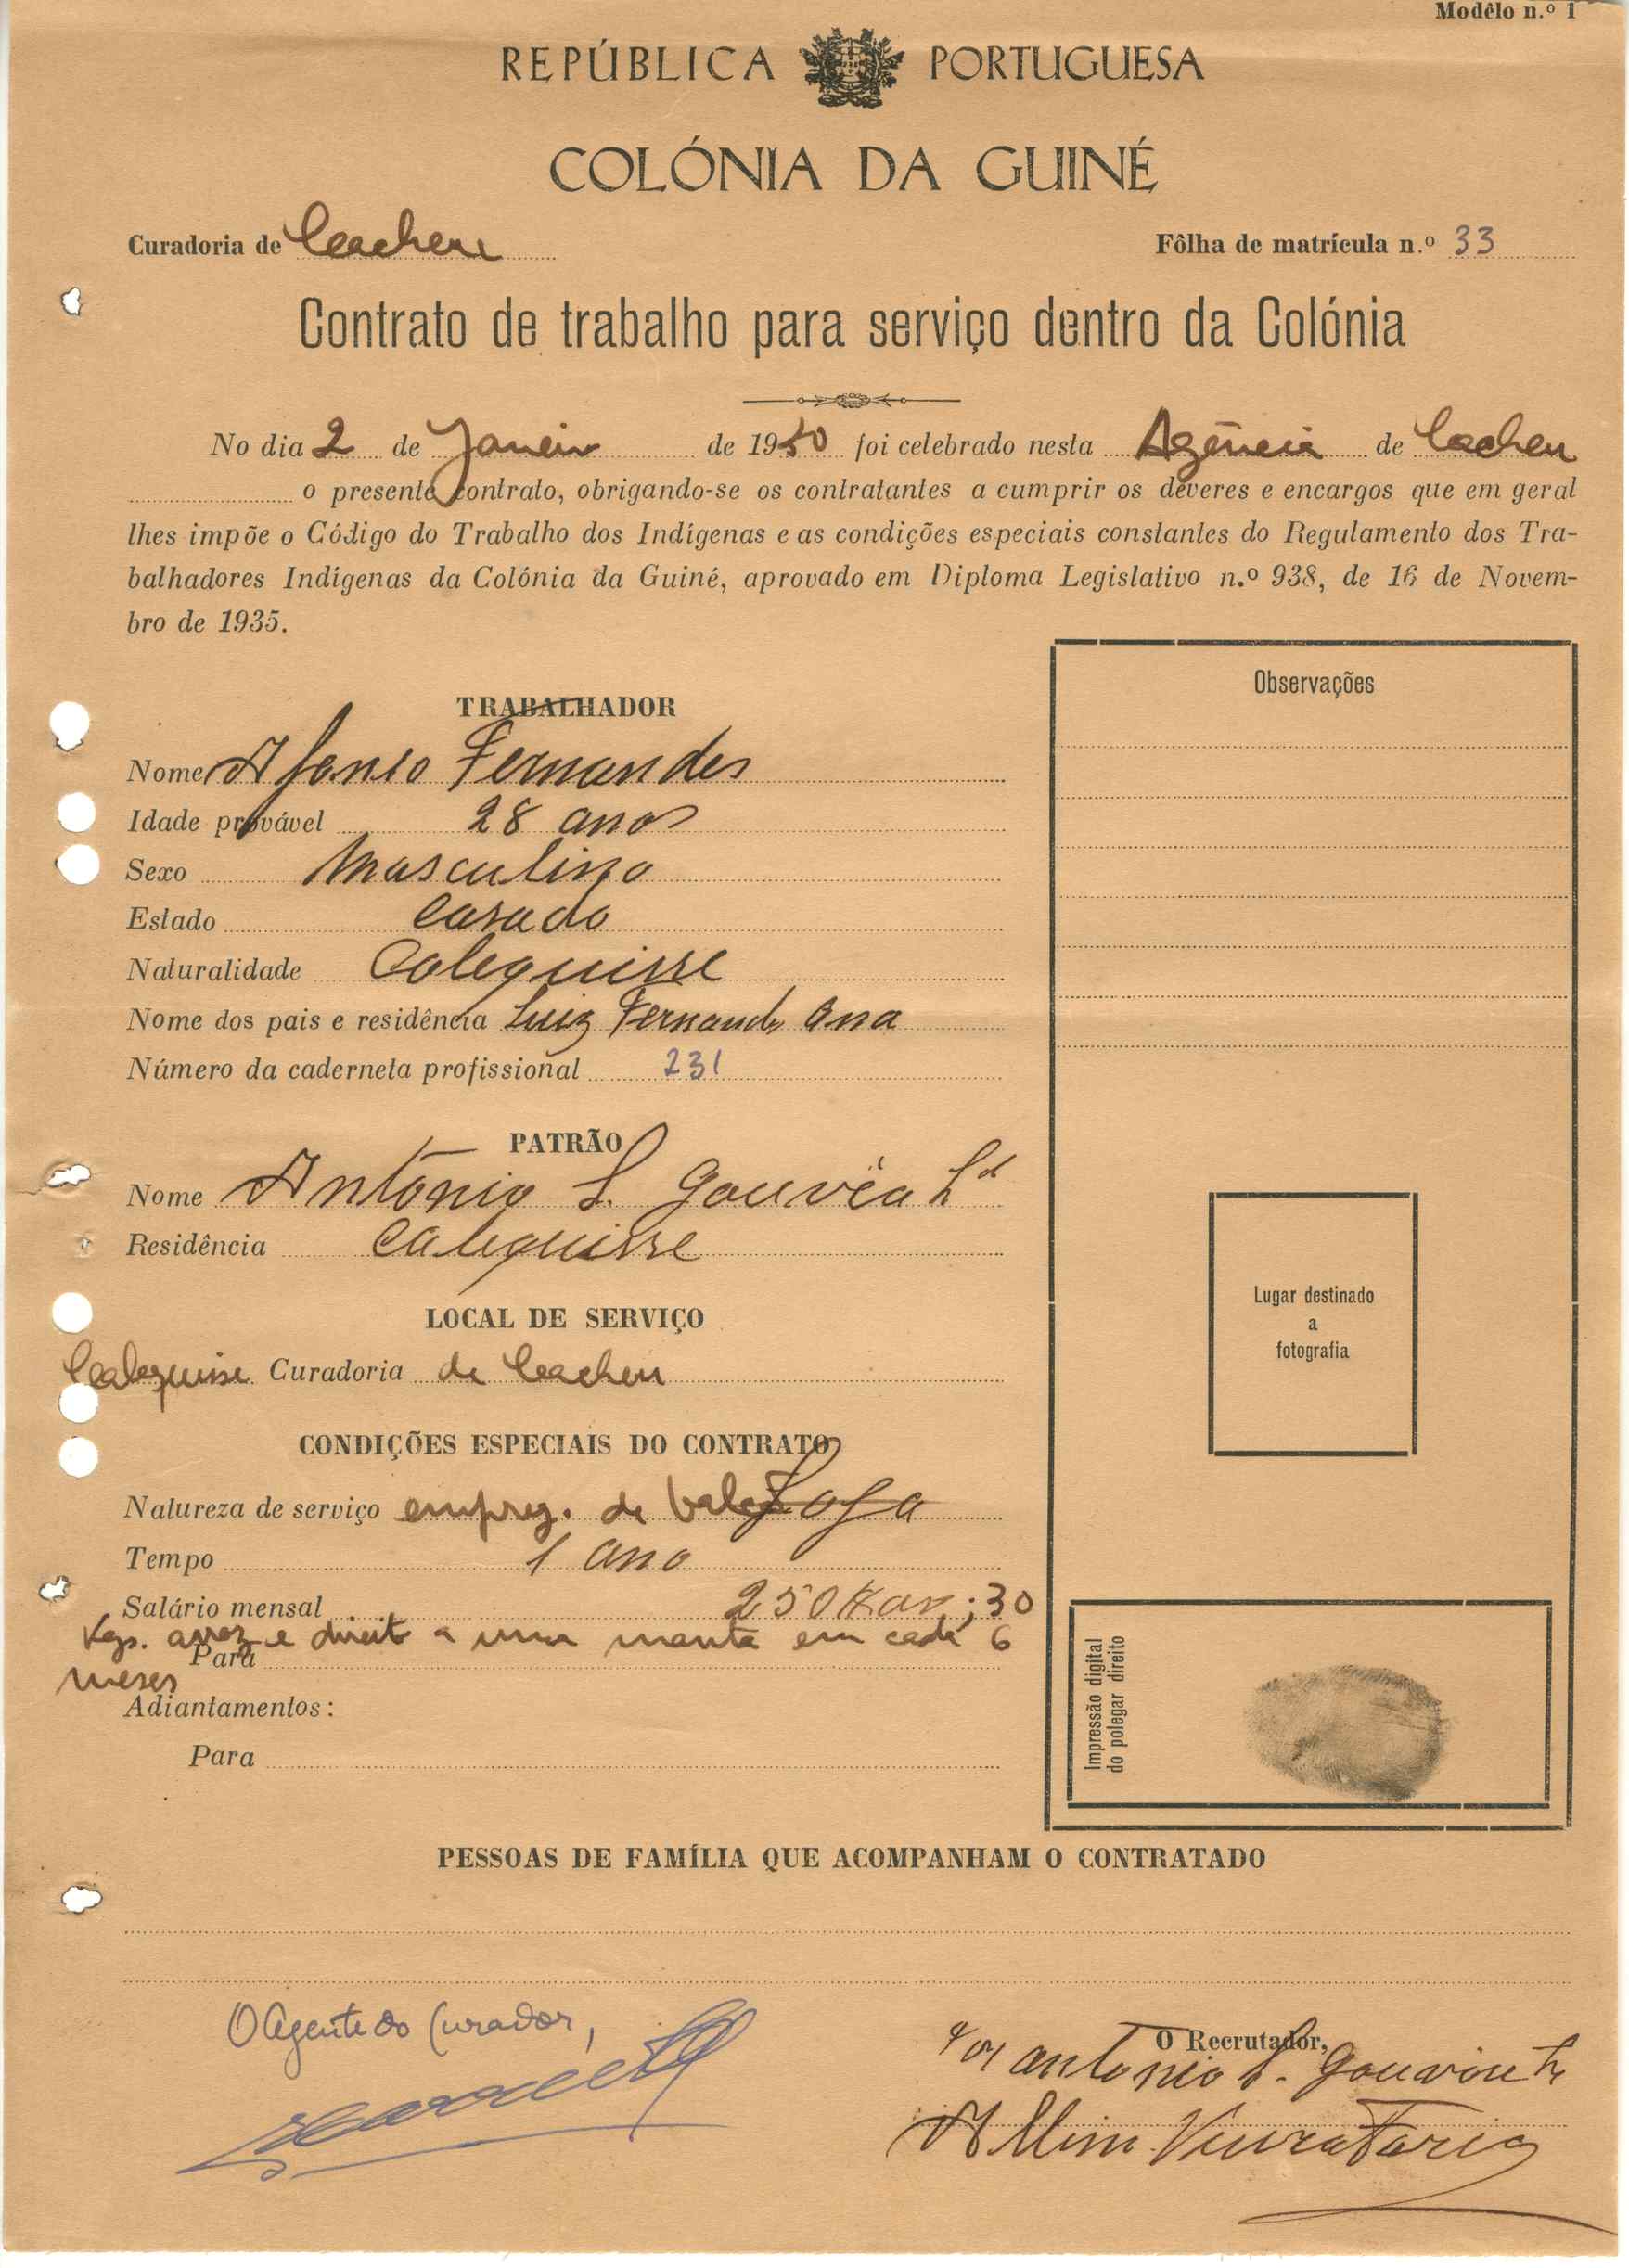 Modêlo n.º 1
REPÚBLICA PORTUGUESA
COLÓNIA DA GUINÉ
Curadoria de Cacheu Fôlha de matrícula n.º 33
Contrato de trabalho para serviço dentro da Colónia
No dia 2 de Janeiro de 1950 foi celebrado nesta Agência de Cacheu
o presente contrato, obrigando-se os contratantes a cumprir os deveres e encargos que em geral
lhes impõe o Código do Trabalho dos Indígenas e as condições especiais constantes do Regulamento dos Tra-
balhadores Indígenas da Colónia da Guiné, aprovado em Diploma Legislativo n.º 938, de 16 de Novem-
bro de 1935.
Observações
TRABALHADOR
Nome Afonso Fernandes
Idade provável 28 anos
Sexo Masculino
Estado Casado
Naturalidade Calequisse
Nome dos pais e residência Luiz Fernandes Ana
Número da caderneta profissional 231
PATRÃO
Nome António S. Gouvêa Ld
Residência Calequisse
Lugar destinado
a
fotografia
LOCAL DE SERVIÇO
Calequisse Curadoria de Cacheu
CONDIÇÕES ESPECIAIS DO CONTRATO
Natureza de serviço empreg. de
Tempo 1 ano
Salário mensal 250 ; 30
Kgs. arroz e direito a uma manta em cada 6
Para
meses
Adiantamentos:
Para
Impressão digital
do polegar direito
PESSOAS DE FAMÍLIA QUE ACOMPANHAM O CONTRATADO
O Agente do Curador,
O Recrutador,
Por António S. Gouvêa